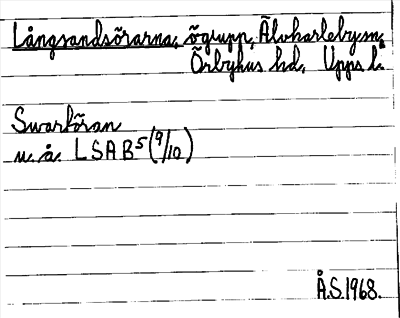 Långsandsörarna, ögrupp, Älvkarleby sn,
Örbyhus hd, Upps l.
Swarköran
u. å. LSA B5 (9/10)
Å.S. 1968.